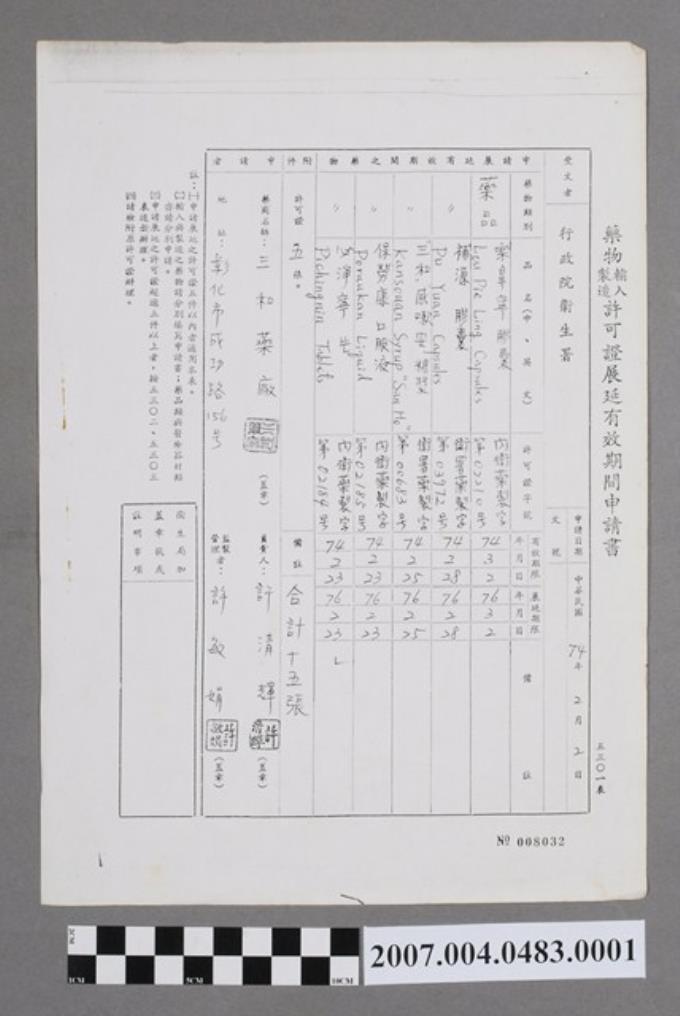 五三〇一表
藥物輸入製造許可證展延有效期間申請書
申請日期 中華民國 74年 2月 2日
文號
受文者 行政院衛生署
申請展延有效期間之藥物
藥物類別 品名(中、英文) 許可證字號 有效期限 年月日 展延期限 年月日 備註
藥品 膠囊 Leu Pie Ling Capsules 內衛藥製字第02210號 74 3 2 76 3 2
〃 補源膠囊 Pu Yuan Capsules 衛署藥製字第03972號 74 2 28 76 2 28
〃 "三和"感嗽 糖漿 Kansouan Syrup "San Ho" 衛署藥製字第00683號 74 2 25 76 2 25
〃 保勞康口服液 Poraukan Liquid 內衛藥製字第02185號 74 2 23 76 2 23
〃 淨寧 Pichingnin Tablets 內衛藥製字第02184號 74 2 23 76 2 23
附件 許可證 五張。 備註 合計十五張
申請者
藥商名稱:三和藥廠 (蓋章) 負責人:許清輝 (蓋章)
地址:彰化市成功路156號 監製管理者:許敏娟 (蓋章)
註:㈠申請展延之許可證五件以內者適用本表。
㈡輸入與製造之藥物請分別填寫申請書;藥品類與醫療器材類
亦請分別申請。
㈢申請展延之許可證超過五件以上者,按五三〇二、五三〇三
表連號辦理。
㈣請檢附原許可證辦理。
衛生局加蓋章戳或證明事項
№ 008032
2CM
1CM
5CM
10CM
2007.004.0483.0001